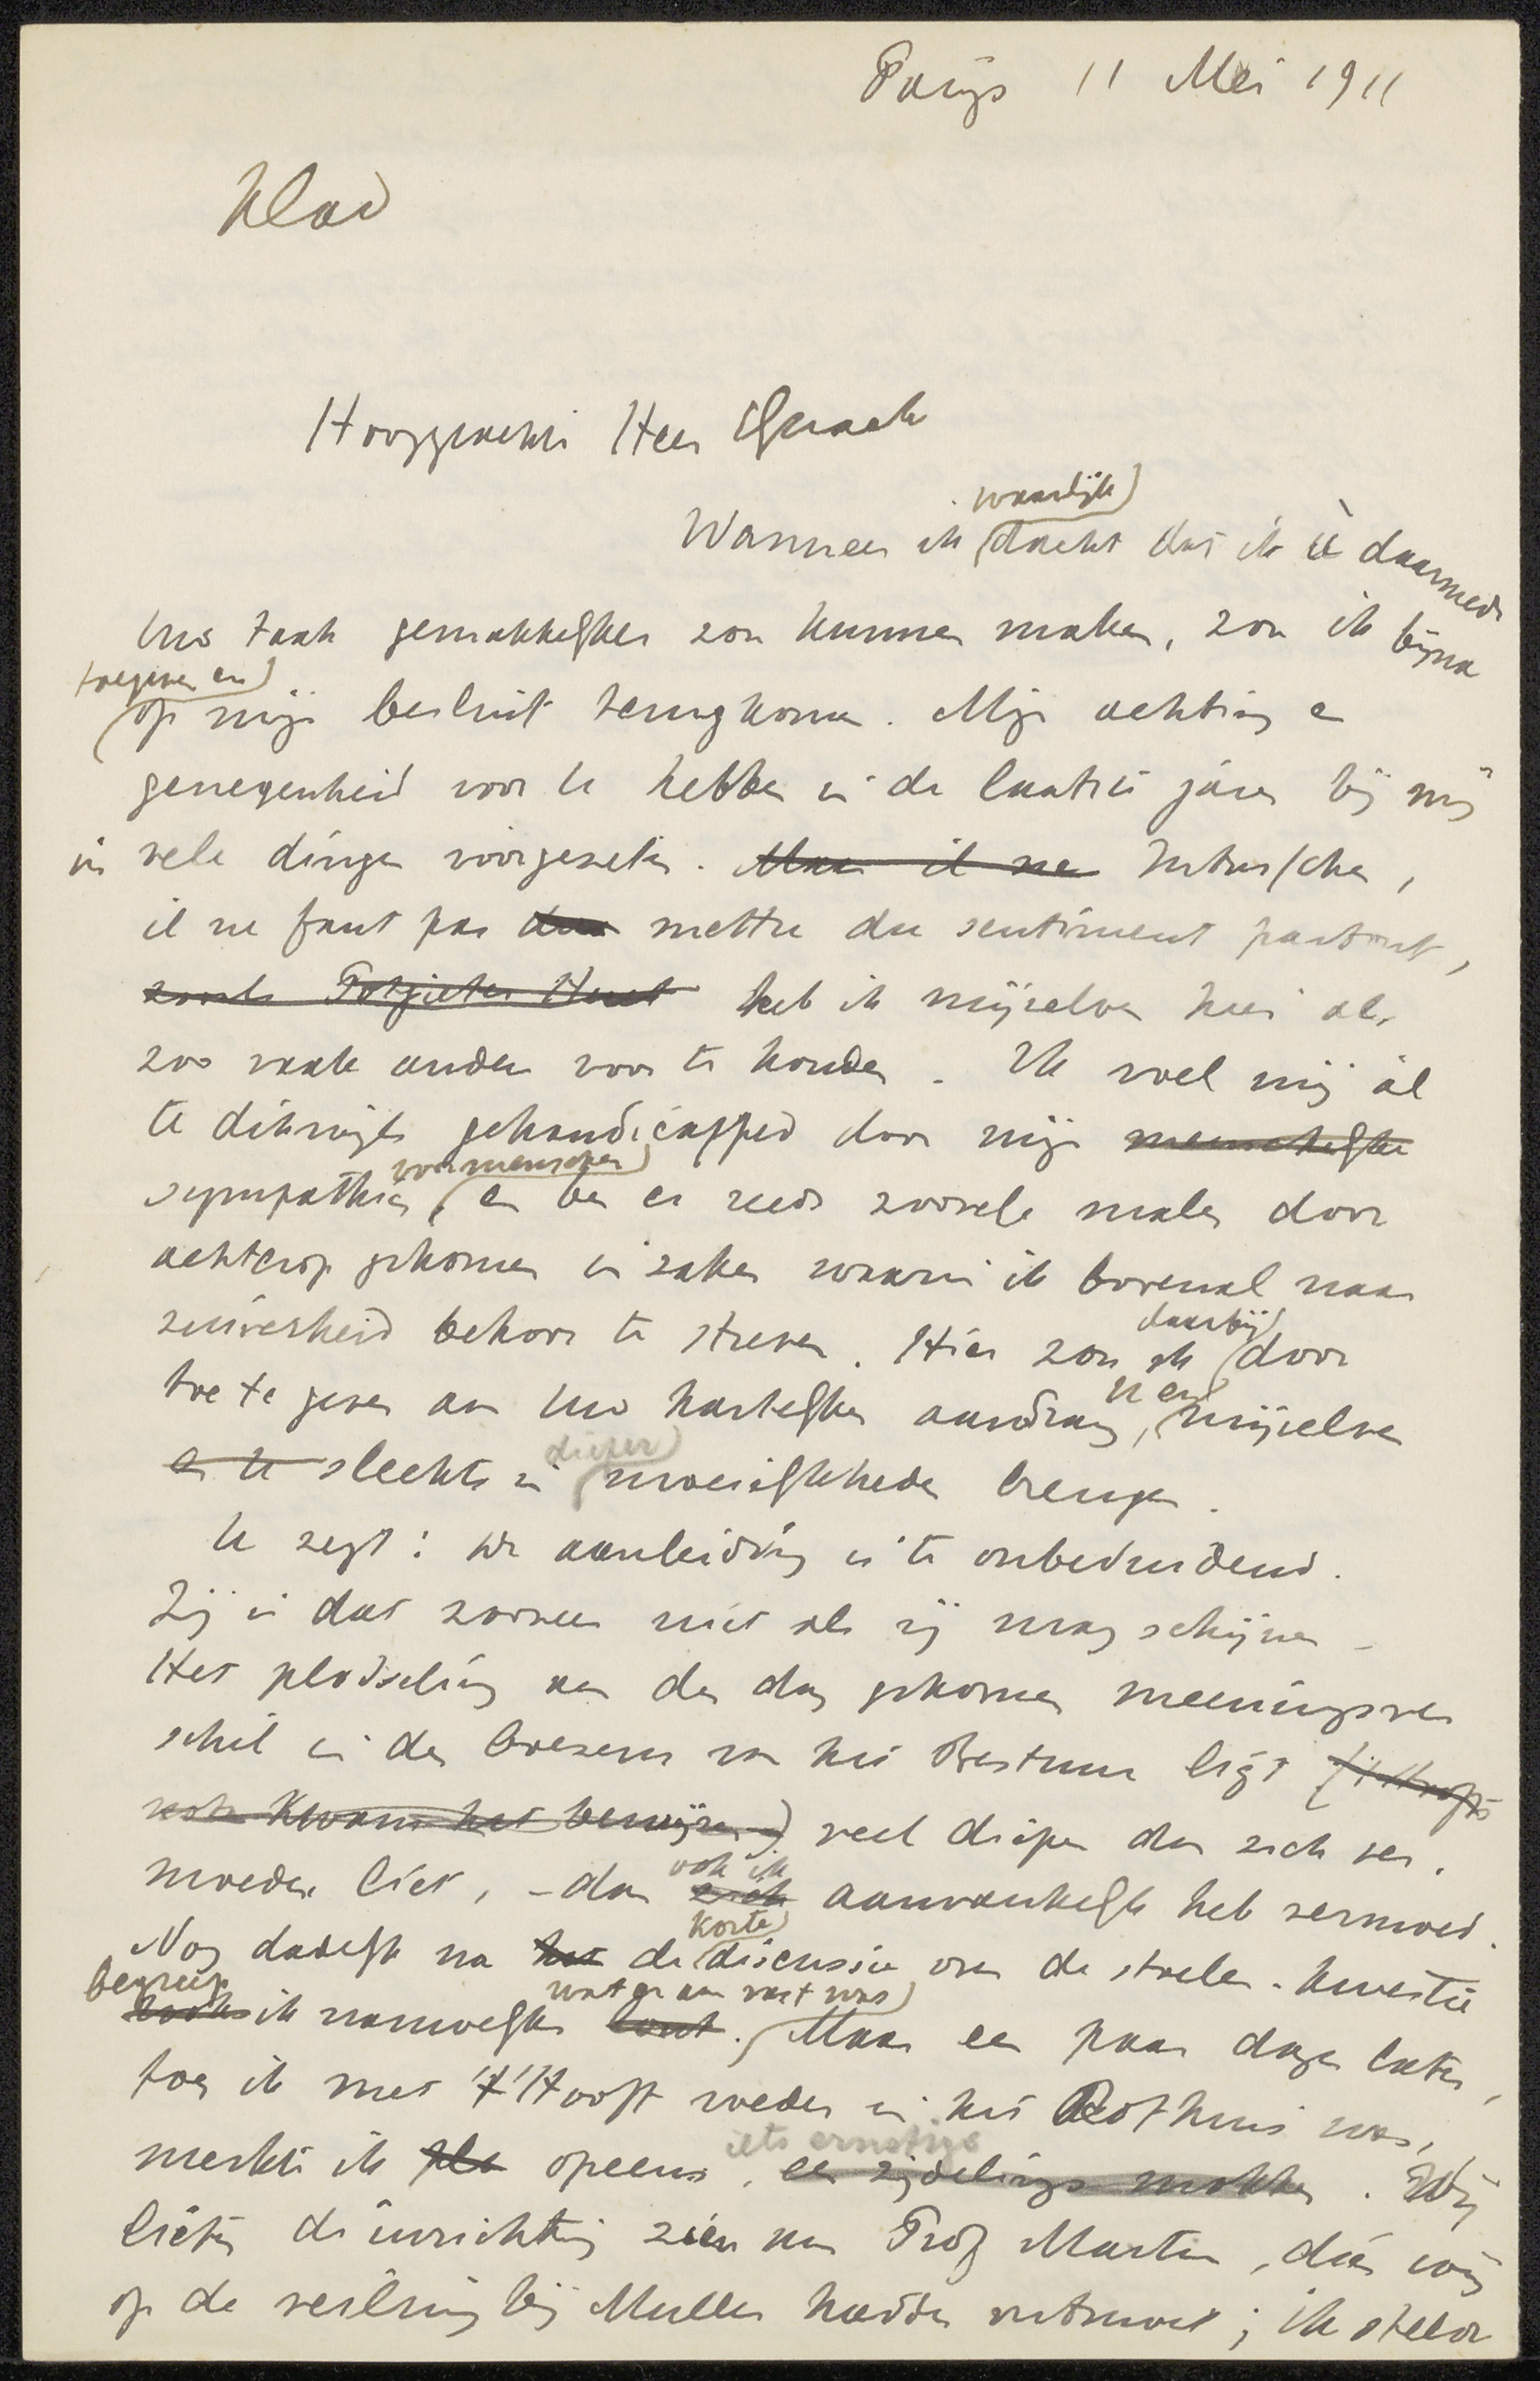 Parijs 11 Mei 1911
Klad
Hooggeachte Heer Quack
waarlijk
Wanneer ik dacht dat ik U daarmede
Uwe taak gemakkelijker zou kunnen maken, zou ik bijna
toegeven en
op mijn besluit terugkomen. Mijn achting en
genegenheid voor U hebben in de laatste jaren bij mij
in vele dingen voorgezeten. Maar il ne Intusschen,
il ne faut pas mettre du sentiment partout,
zooals Potgieter Huet heb ik mijzelven hier al,
zoo vaak anderen voor te houden. Ik voel mij al
te dikwijls gehandicapped door mijn menschelijke
voor menschen
sympathieën, en ben er reeds zoovele malen door
achterop gekomen in zaken waarin ik bovenal naar
zuiverheid behoor te streven. Hier zou ik door
daarbij
toe te geven aan Uw hartelijken aandrang, mijzelven
U en
en U slechts in moeielijkheden brengen.
dieper
U zegt: de aanleiding is te onbeduidend.
Zij is dat zoozeer niet als zij mag schijnen –
Het plotseling aan den dag gekomen meeningsver
schil in den boezem van het Bestuur ligt
kwam het bewijzen) veel dieper dan zich ver.
moeden liet, – dan zich aanvankelijk heb vermoed.
ook ik
korte
Nog dadelijk na het de discussie over de stoelen-kwestie
begreep
wat er aan vast was
ik nauwelijks. Maar een paar dagen later,
toen ik met 't Hooft weder in het Rothuis was,
iets ernstigs
merkte ik opeens, een zijdelings mokken. Wij
lieten de inrichting zien aan Prof Martin, dien wij
op de veiling bij Muller hadden ontmoet; ik stelde